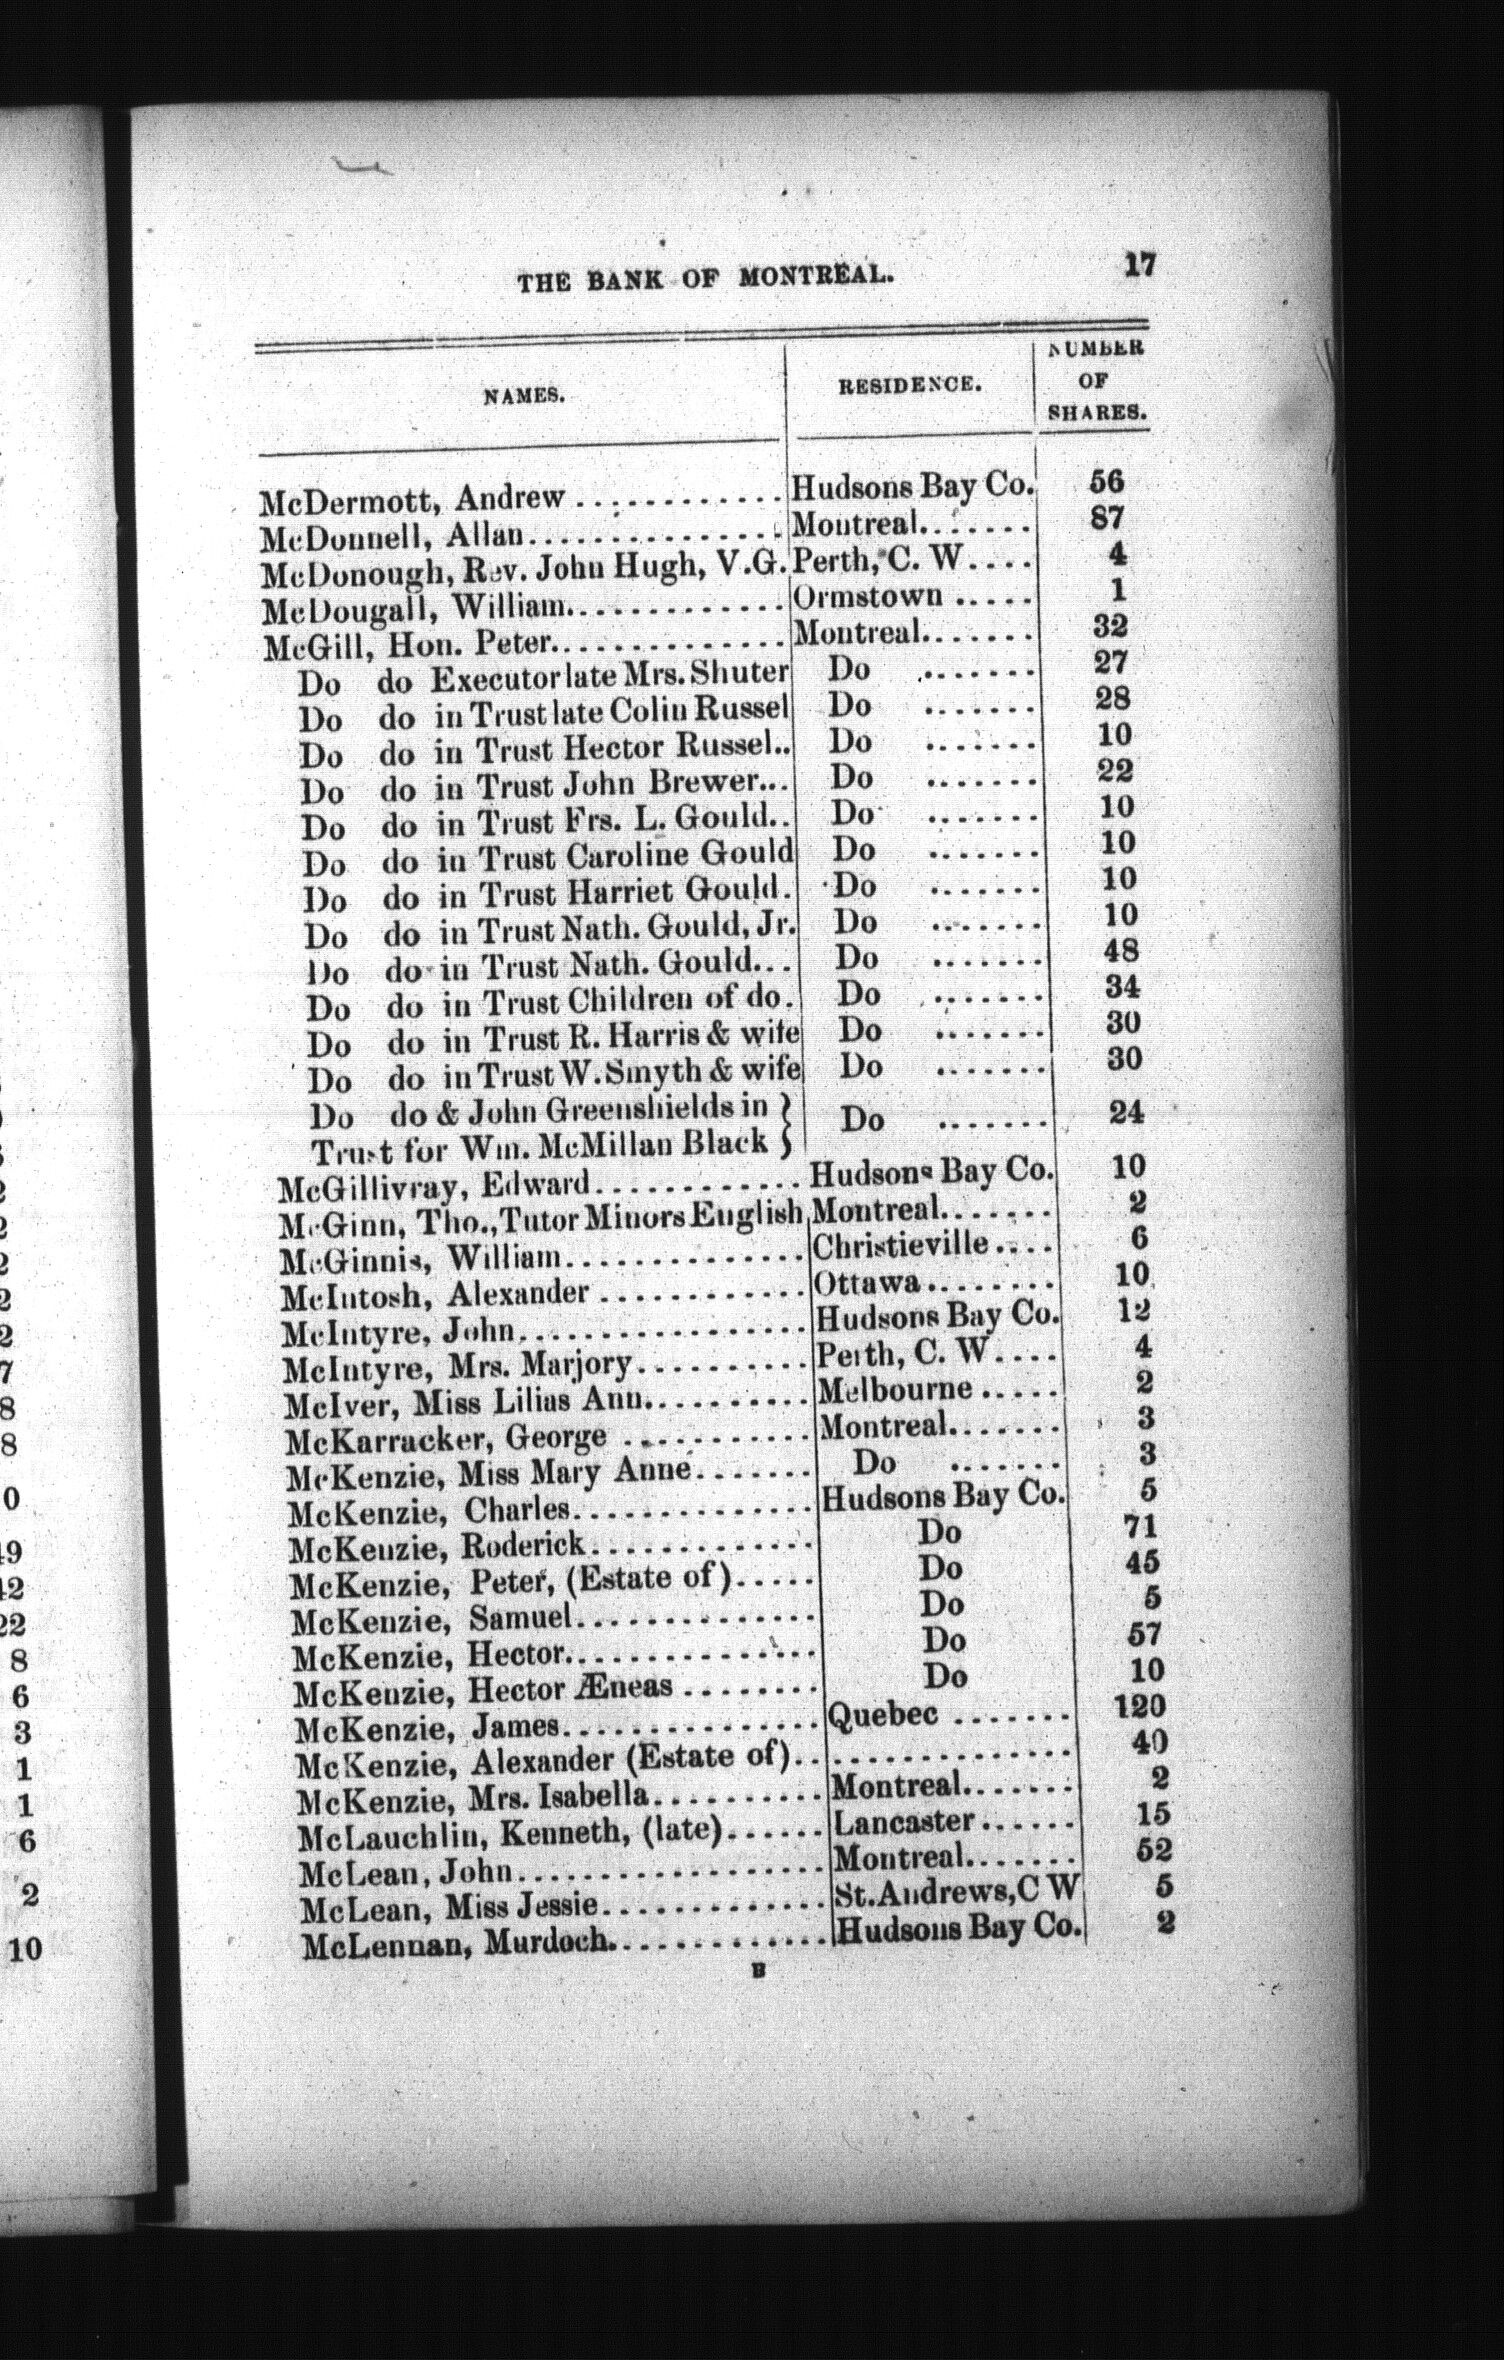 THE BANK OF MONTREAL. 17
NAMES. RESIDENCE. NUMBER OF SHARES.
McDermott, Andrew ............ Hudsons Bay Co. 56
McDonnell, Allan............... Montreal....... 87
McDonough, Rev. John Hugh, V.G. Perth, C. W.... 4
McDougall, William............. Ormstown ..... 1
McGill, Hon. Peter.............. Montreal....... 32
Do do Executor late Mrs. Shuter Do ....... 27
Do do in Trust late Colin Russel Do ....... 28
Do do in Trust Hector Russel.. Do ....... 10
Do do in Trust John Brewer... Do ....... 22
Do do in Trust Frs. L. Gould.. Do ....... 10
Do do in Trust Caroline Gould Do ....... 10
Do do in Trust Harriet Gould. Do ....... 10
Do do in Trust Nath. Gould, Jr. Do ....... 10
Do do in Trust Nath. Gould... Do ....... 48
Do do in Trust Children of do. Do ....... 34
Do do in Trust R. Harris & wife Do ....... 30
Do do in Trust W. Smyth & wife Do ....... 30
Do do & John Greenshields in } Do ....... 24
Trust for Wm. McMillan Black }
McGillivray, Edward............ Hudsons Bay Co. 10
McGinn, Tho., Tutor Minors English Montreal....... 2
McGinnis, William.............. Christieville.... 6
McIntosh, Alexander ............ Ottawa........ 10
McIntyre, John................. Hudsons Bay Co. 12
McIntyre, Mrs. Marjory.......... Perth, C. W.... 4
McIver, Miss Lilias Ann.......... Melbourne ..... 2
McKarracker, George ........... Montreal....... 3
McKenzie, Miss Mary Anne....... Do ....... 3
McKenzie, Charles.............. Hudsons Bay Co. 5
McKenzie, Roderick............. Do 71
McKenzie, Peter, (Estate of)..... Do 45
McKenzie, Samuel.............. Do 5
McKenzie, Hector.............. Do 57
McKenzie, Hector Æneas ........ Do 10
McKenzie, James............... Quebec ....... 120
McKenzie, Alexander (Estate of).. .............. 40
McKenzie, Mrs. Isabella.......... Montreal....... 2
McLauchlin, Kenneth, (late)...... Lancaster...... 15
McLean, John................. Montreal....... 52
McLean, Miss Jessie............. St. Andrews, C W 5
McLennan, Murdoch............. Hudsons Bay Co. 2
B
2
2
2
2
2
7
8
8
0
19
42
22
8
6
3
1
1
6
2
10